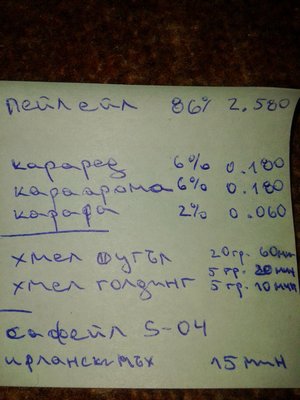 пейлейл 86% 2.580
караред 6% 0.180
караарома 6% 0.180
карафа 2% 0.060
хмел фугъл 20гр. 60мин
5гр. 20мин
хмел голдинг 5гр. 10мин
сафейл S-04
ирлански мъх 15мин